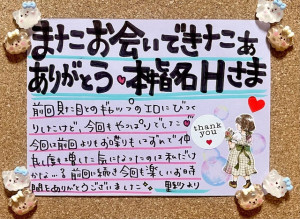 またお会いできたぁ
ありがとう♥本指名Hさま
前回見た目とのギャップのエロにびっく
りしたけど、今回もやっぱりでした
今回は前回よりもお喋りもしすぎて仲
良し度も増した気になったのは私だけ
かな…？前回に続き今回も楽しいお時
間をありがとうございました
より
thank
you